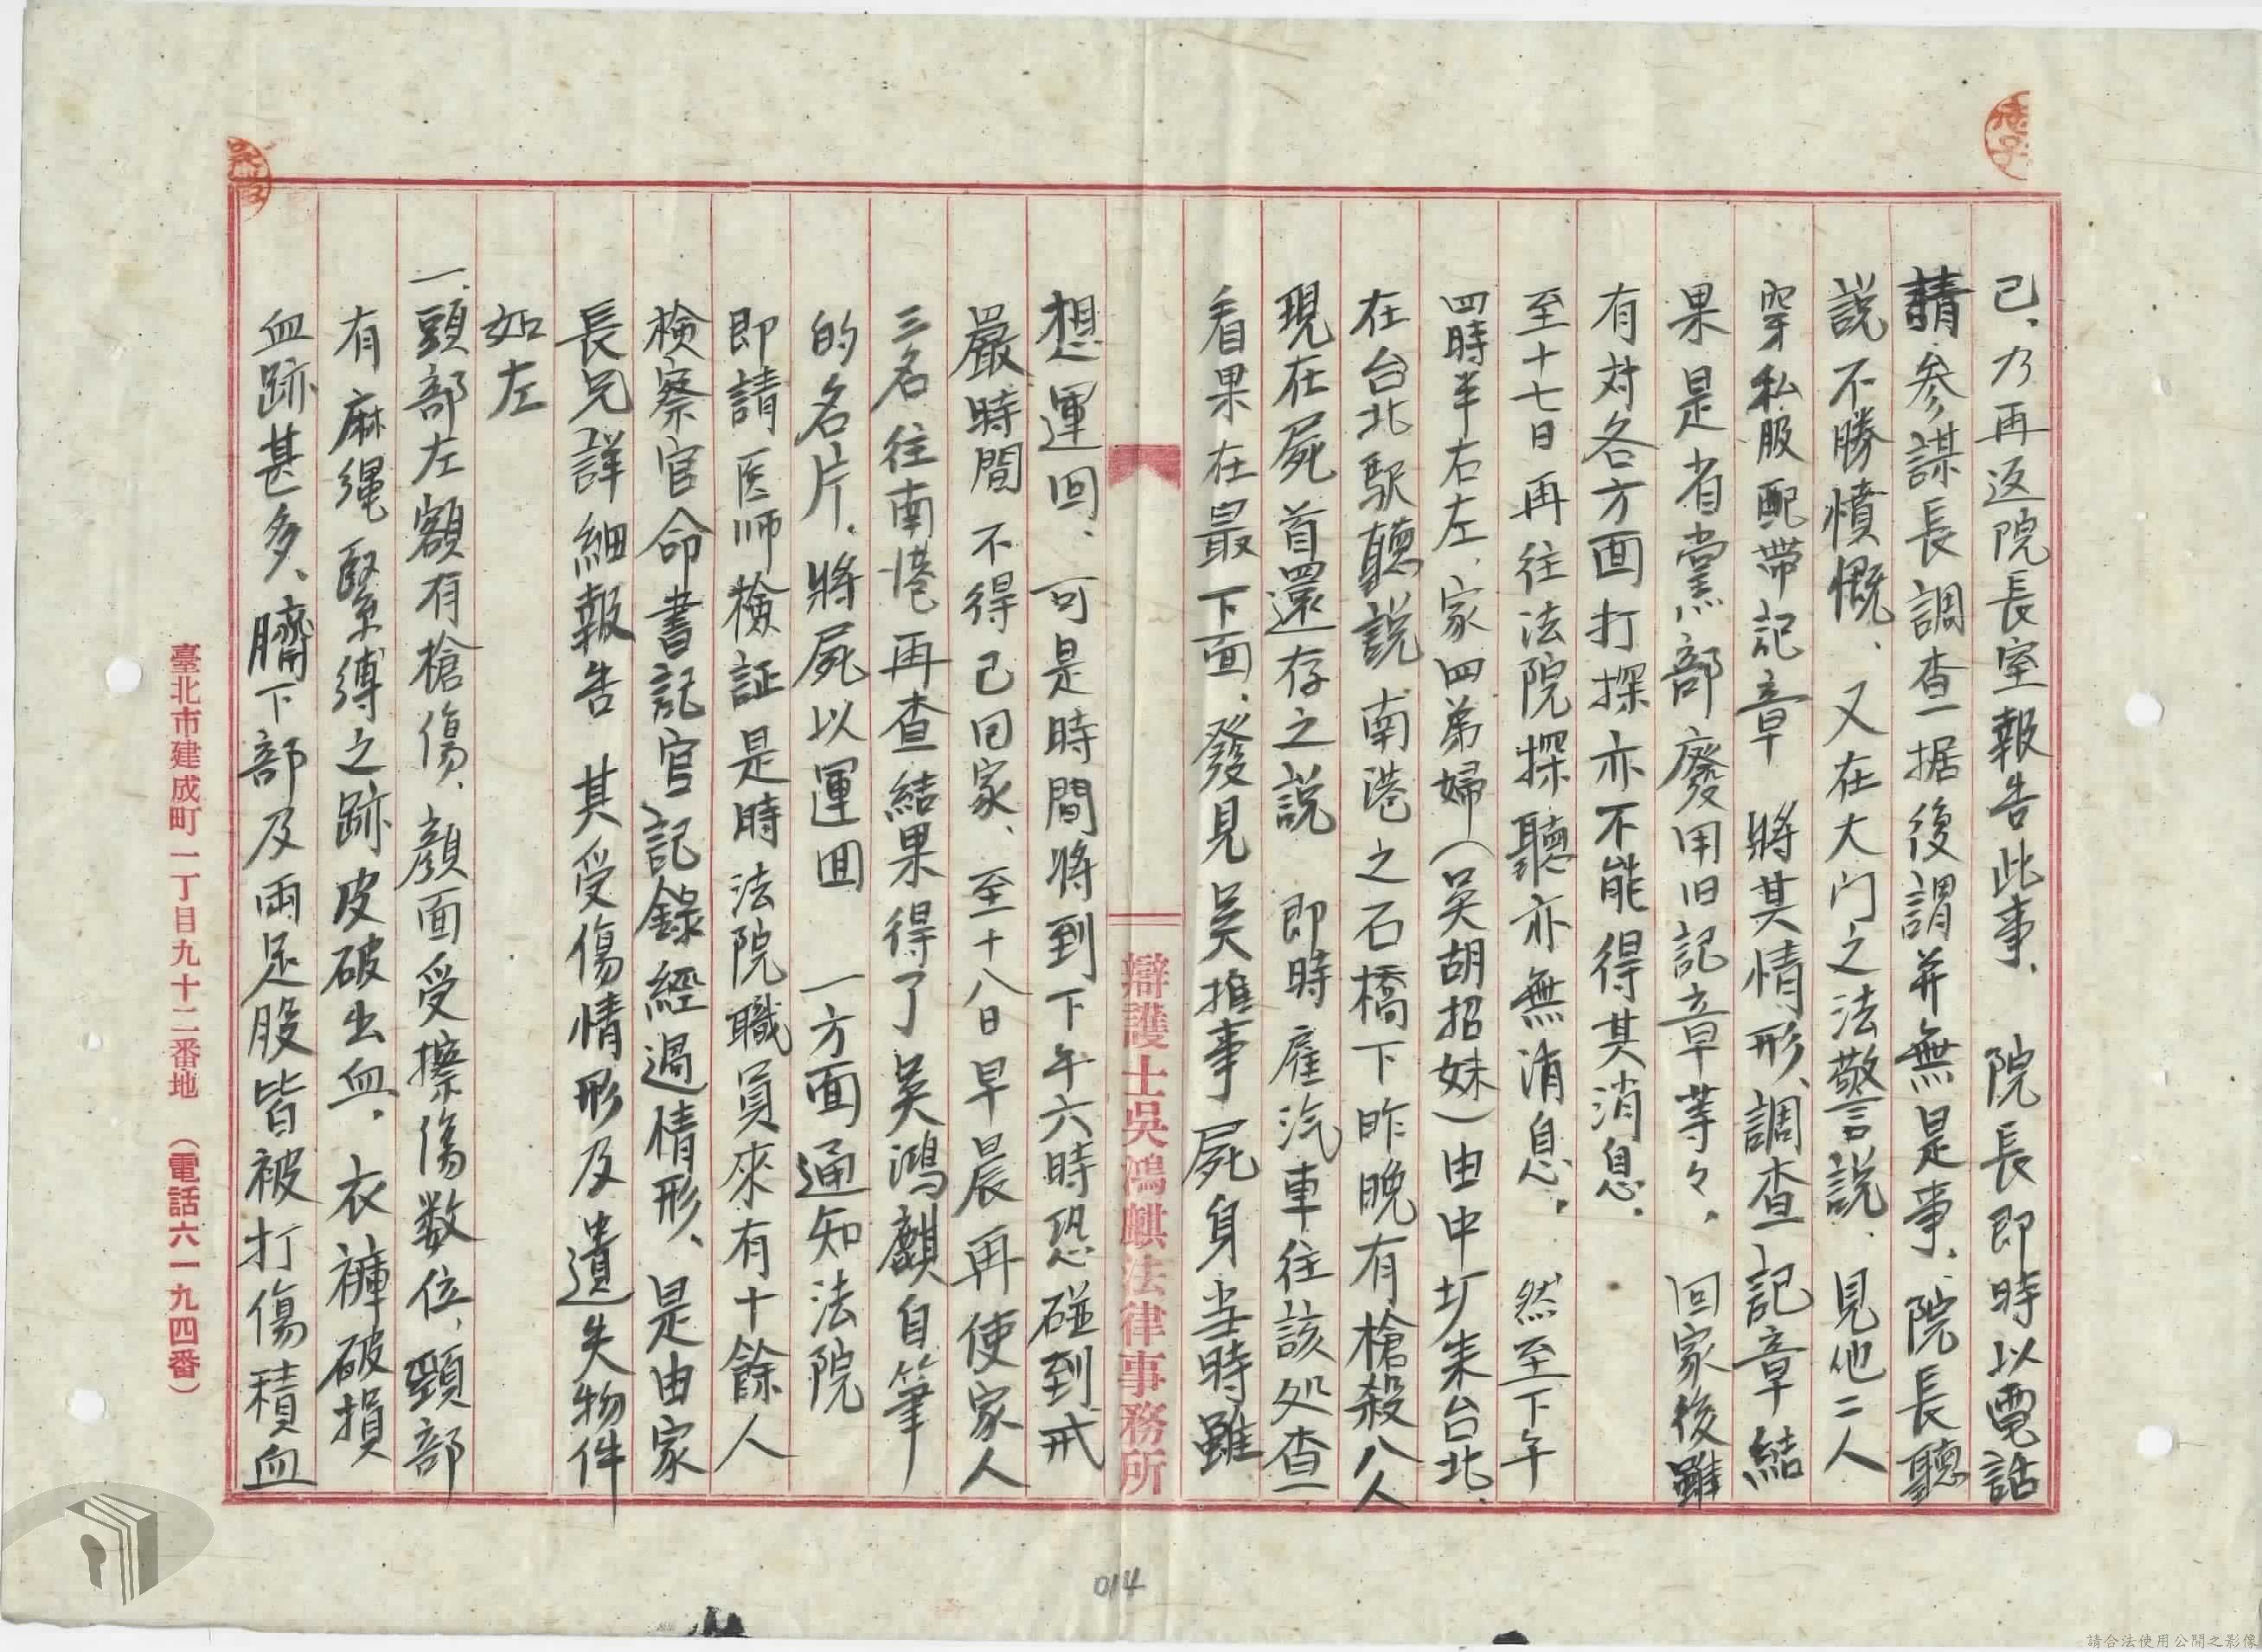 己、乃再返院長室報告此事、院長即時以電話
請參謀長調查一据後謂并無是事、院長聽
説不勝憤慨、又在大门之法警言説、見他二人
穿私服配帶記章 將其情形、調查記章結
果是省党部廢用旧記章等々、回家後雖
有対各方面打探亦不能得其消息、
至十七日再往法院探聽亦無消息、然至下午
四時半右左、家四弟婦（吴胡招妹）由中圹来台北、
在台北駅聽説南港之石橋下昨晚有槍殺八人
現在屍首還存之説 即時雇汽車往該処查一
看果在最下面、發見吴推事屍身当時雖
辯護士吳鴻麒法律事務所
想運回、可是時間將到下午六時恐碰到戒
嚴時間不得已回家、至十八日早晨再使家人
三名往南港再查結果得了吴鴻麒自筆
的名片、將屍以運囬 一方面通知法院
即請医师検証是時法院職員來有十餘人
檢察官命書記官記錄經過情形、是由家
長兄詳細報告 其受傷情形及遺失物件
如左
一、頭部左額有槍傷、顔面受擦傷数位、頸部
有麻绳緊縛之跡皮破出血、衣褲破損
血跡甚多、臍下部及両足股皆被打傷積血
臺北市建成町一丁目九十二番地 （電話六一九四番）
014
請合法使用公開之影像